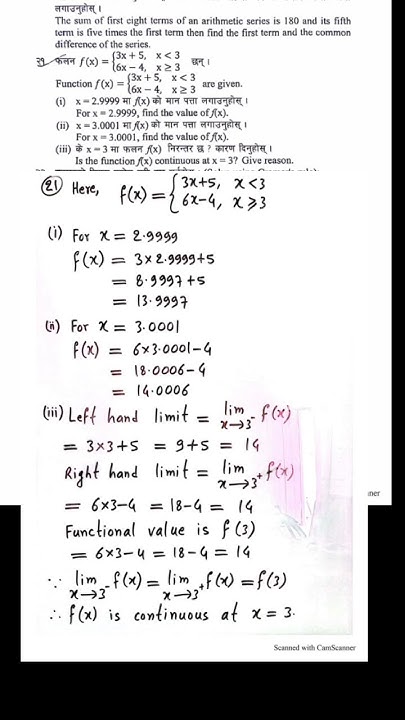 लगाउनुहोस् ।
The sum of first eight terms of an arithmetic series is 180 and its fifth
term is five times the first term then find the first term and the common
difference of the series.
२१. फलन f(x) = {3x + 5, x < 3
6x − 4, x ≥ 3 छन् ।
Function f(x) = {3x + 5, x < 3
6x − 4, x ≥ 3 are given.
(i) x = 2.9999 मा f(x) को मान पत्ता लगाउनुहोस् ।
For x = 2.9999, find the value of f(x).
(ii) x = 3.0001 मा f(x) को मान पत्ता लगाउनुहोस् ।
For x = 3.0001, find the value of f(x).
(iii) के x = 3 मा फलन f(x) निरन्तर छ ? कारण दिनुहोस् ।
Is the function f(x) continuous at x = 3? Give reason.
(21) Here, f(x) = {3x+5, x<3
6x-4, x⩾3
(i) For x = 2.9999
f(x) = 3×2.9999+5
= 8.9997+5
= 13.9997
(ii) For x = 3.0001
f(x) = 6×3.0001-4
= 18.0006-4
= 14.0006
(iii) Left hand limit = lim x→3⁻ f(x)
= 3×3+5 = 9+5 = 14
Right hand limit = lim x→3⁺ f(x)
= 6×3-4 = 18-4 = 14
Functional value is f(3)
= 6×3-4 = 18-4 = 14
∵ lim x→3⁻ f(x) = lim x→3⁺ f(x) = f(3)
∴ f(x) is continuous at x = 3.
nner
Scanned with CamScanner